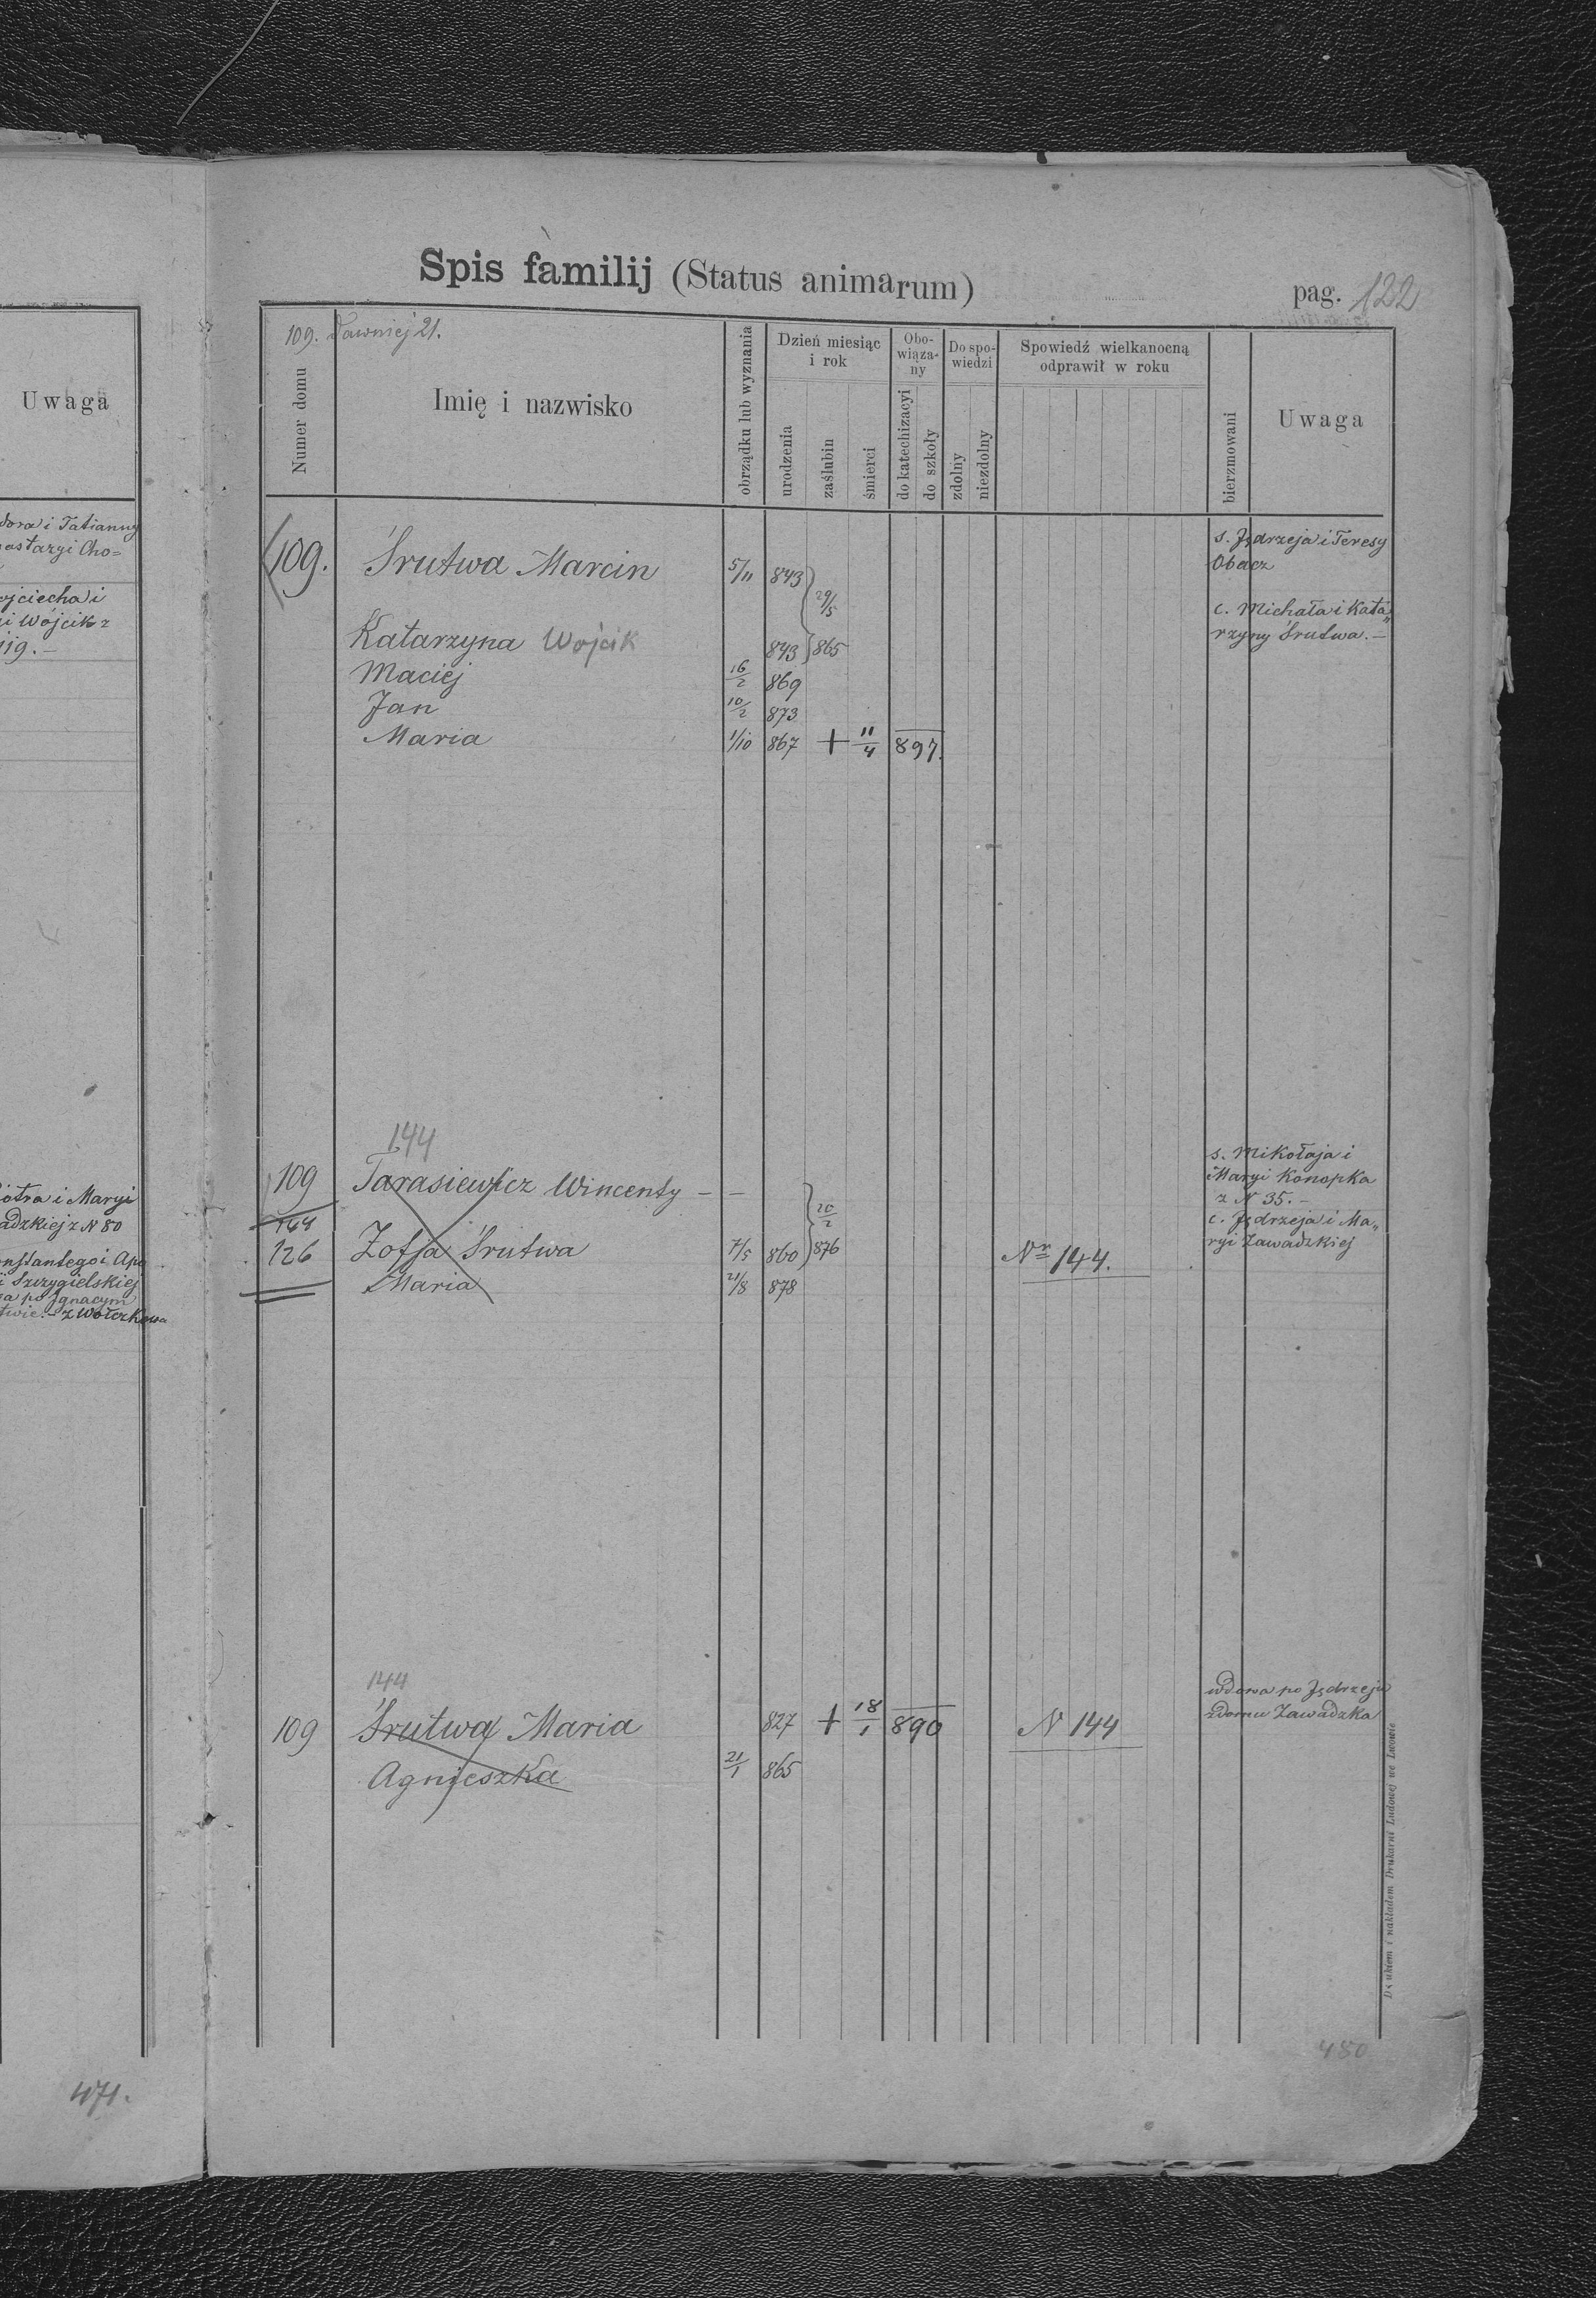 Uwaga
dora i Tatianny
astazyi Cho=
ojciecha i
i Wójcik z
119.—
iotra i Maryi
adzkiej z N 80
onstantego i Apo
i Szczygielskiej
a po Ignacym
twie.— z Wołczkowa
471.
Spis familij (Status animarum)
pag. 122
109. dawniej 21.
Numer domu
Imię i nazwisko
obrządku lub wyznania
Dzień miesiąc i rok
urodzenia
zaślubin
śmierci
Obo-wiąza-ny
do katechizacyi
do szkoły
Do spo-wiedzi
zdolny
niezdolny
Spowiedź wielkanocną odprawił w roku
bierzmowani
Uwaga
s. Jędrzeja i Teresy
109. Śrutwa Marcin 5/11 843 Obacz
29/5
c. Michała i Kata„
Katarzyna Wójcik 843 865 rzyny Śrutwa.—
Maciej 16/2 869
Jan 10/2 873
Maria 1/10 867 + 11/4 897.
144
s. Mikołaja i
109 Tarasiewicz Wincenty – – Maryi Konopka
z N 35.–
144 20/2 c. Jędrzeja i Ma„
126 Zofja Śrutwa 7/5 860 876 Nr 144. ryi Zawadzkiej
Maria 21/8 878
144
wdowa po Jędrzeju
109 Śrutwa Maria 827 + 18/1 890 N 144 zdomu Zawadzka
Agnieszka 21/1 865
Drukiem i nakładem Drukarni Ludowej we Lwowie
480